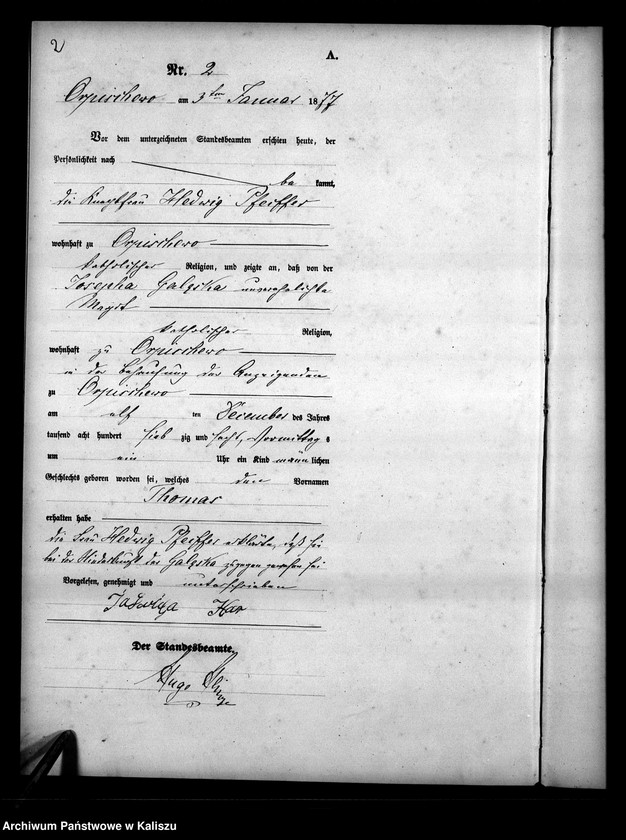 2
A.
Nr. 2
Orpischewo am 3ten Januar 1877
Vor dem unterzeichneten Standesbeamten erschien heute, der
Persönlichkeit nach
be kannt,
die Hedwig Pfeiffer
wohnhaft zu Orpischewo
katholischer Religion, und zeigte an, daß von der
Josepha Galęska unverehelichte
Magd
katholischer Religion,
wohnhaft zu Orpischewo
in der Behausung der Anzeigenden
zu Orpischewo
am elf ten December des Jahres
tausend acht hundert sieb zig und sechs, Vormittag s
um ein Uhr ein Kind männlichen
Geschlechts geboren worden sei, welches den Vornamen
Thomas
erhalten habe
Die Frau Hedwig Pfeiffer erklärte, daß sie
bei der Niederkunft der Galęska zugegen gewesen sei
Vorgelesen, genehmigt und unterschrieben
Jadwiga
Der Standesbeamte.
Hugo
Archiwum Państwowe w Kaliszu